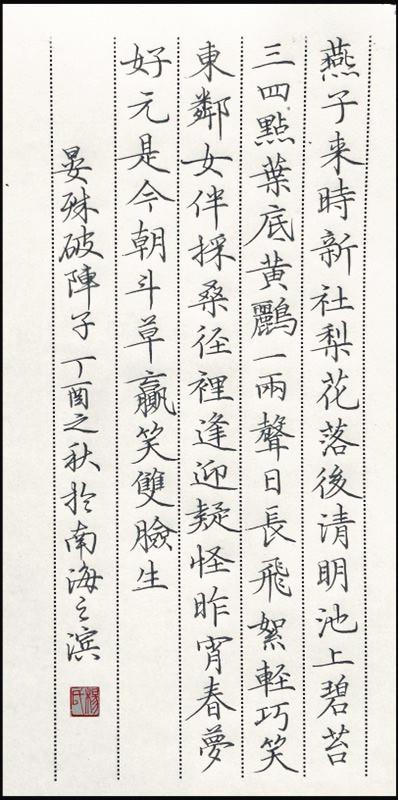 燕子来時新社梨花落後清明池上碧苔
三四點葉底黄鸝一兩聲日長飛絮輕巧笑
東鄰女伴採桑径裡逢迎疑怪昨宵春夢
好元是今朝斗草贏笑雙臉生
晏殊破陣子 丁酉之秋於南海之滨
楊氏